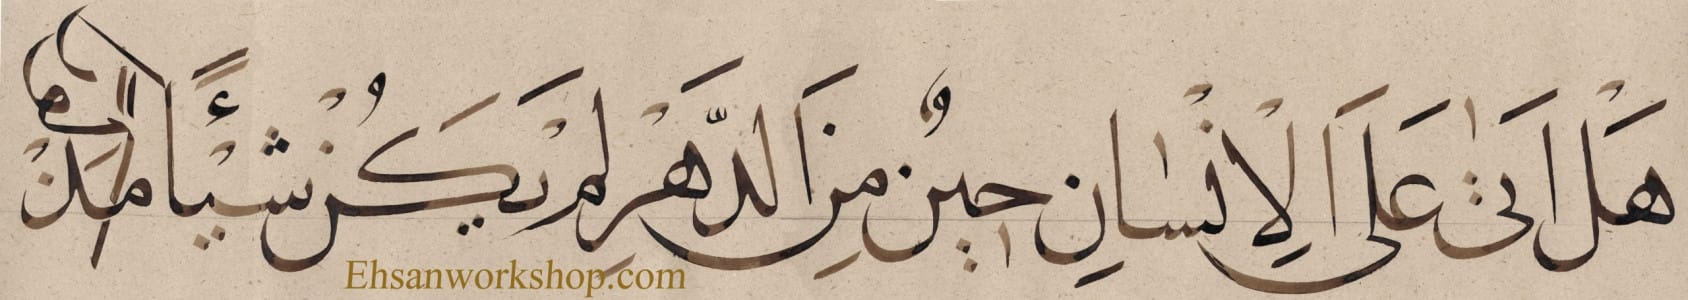 هَلْ اَتىٰ عَلَى الْاِنْسٰانِ حينٌ مِنَ الدَّهْرِ لَمْ يَكُنْ شَيْئاً مَذْكُوراً
Ehsanworkshop.com